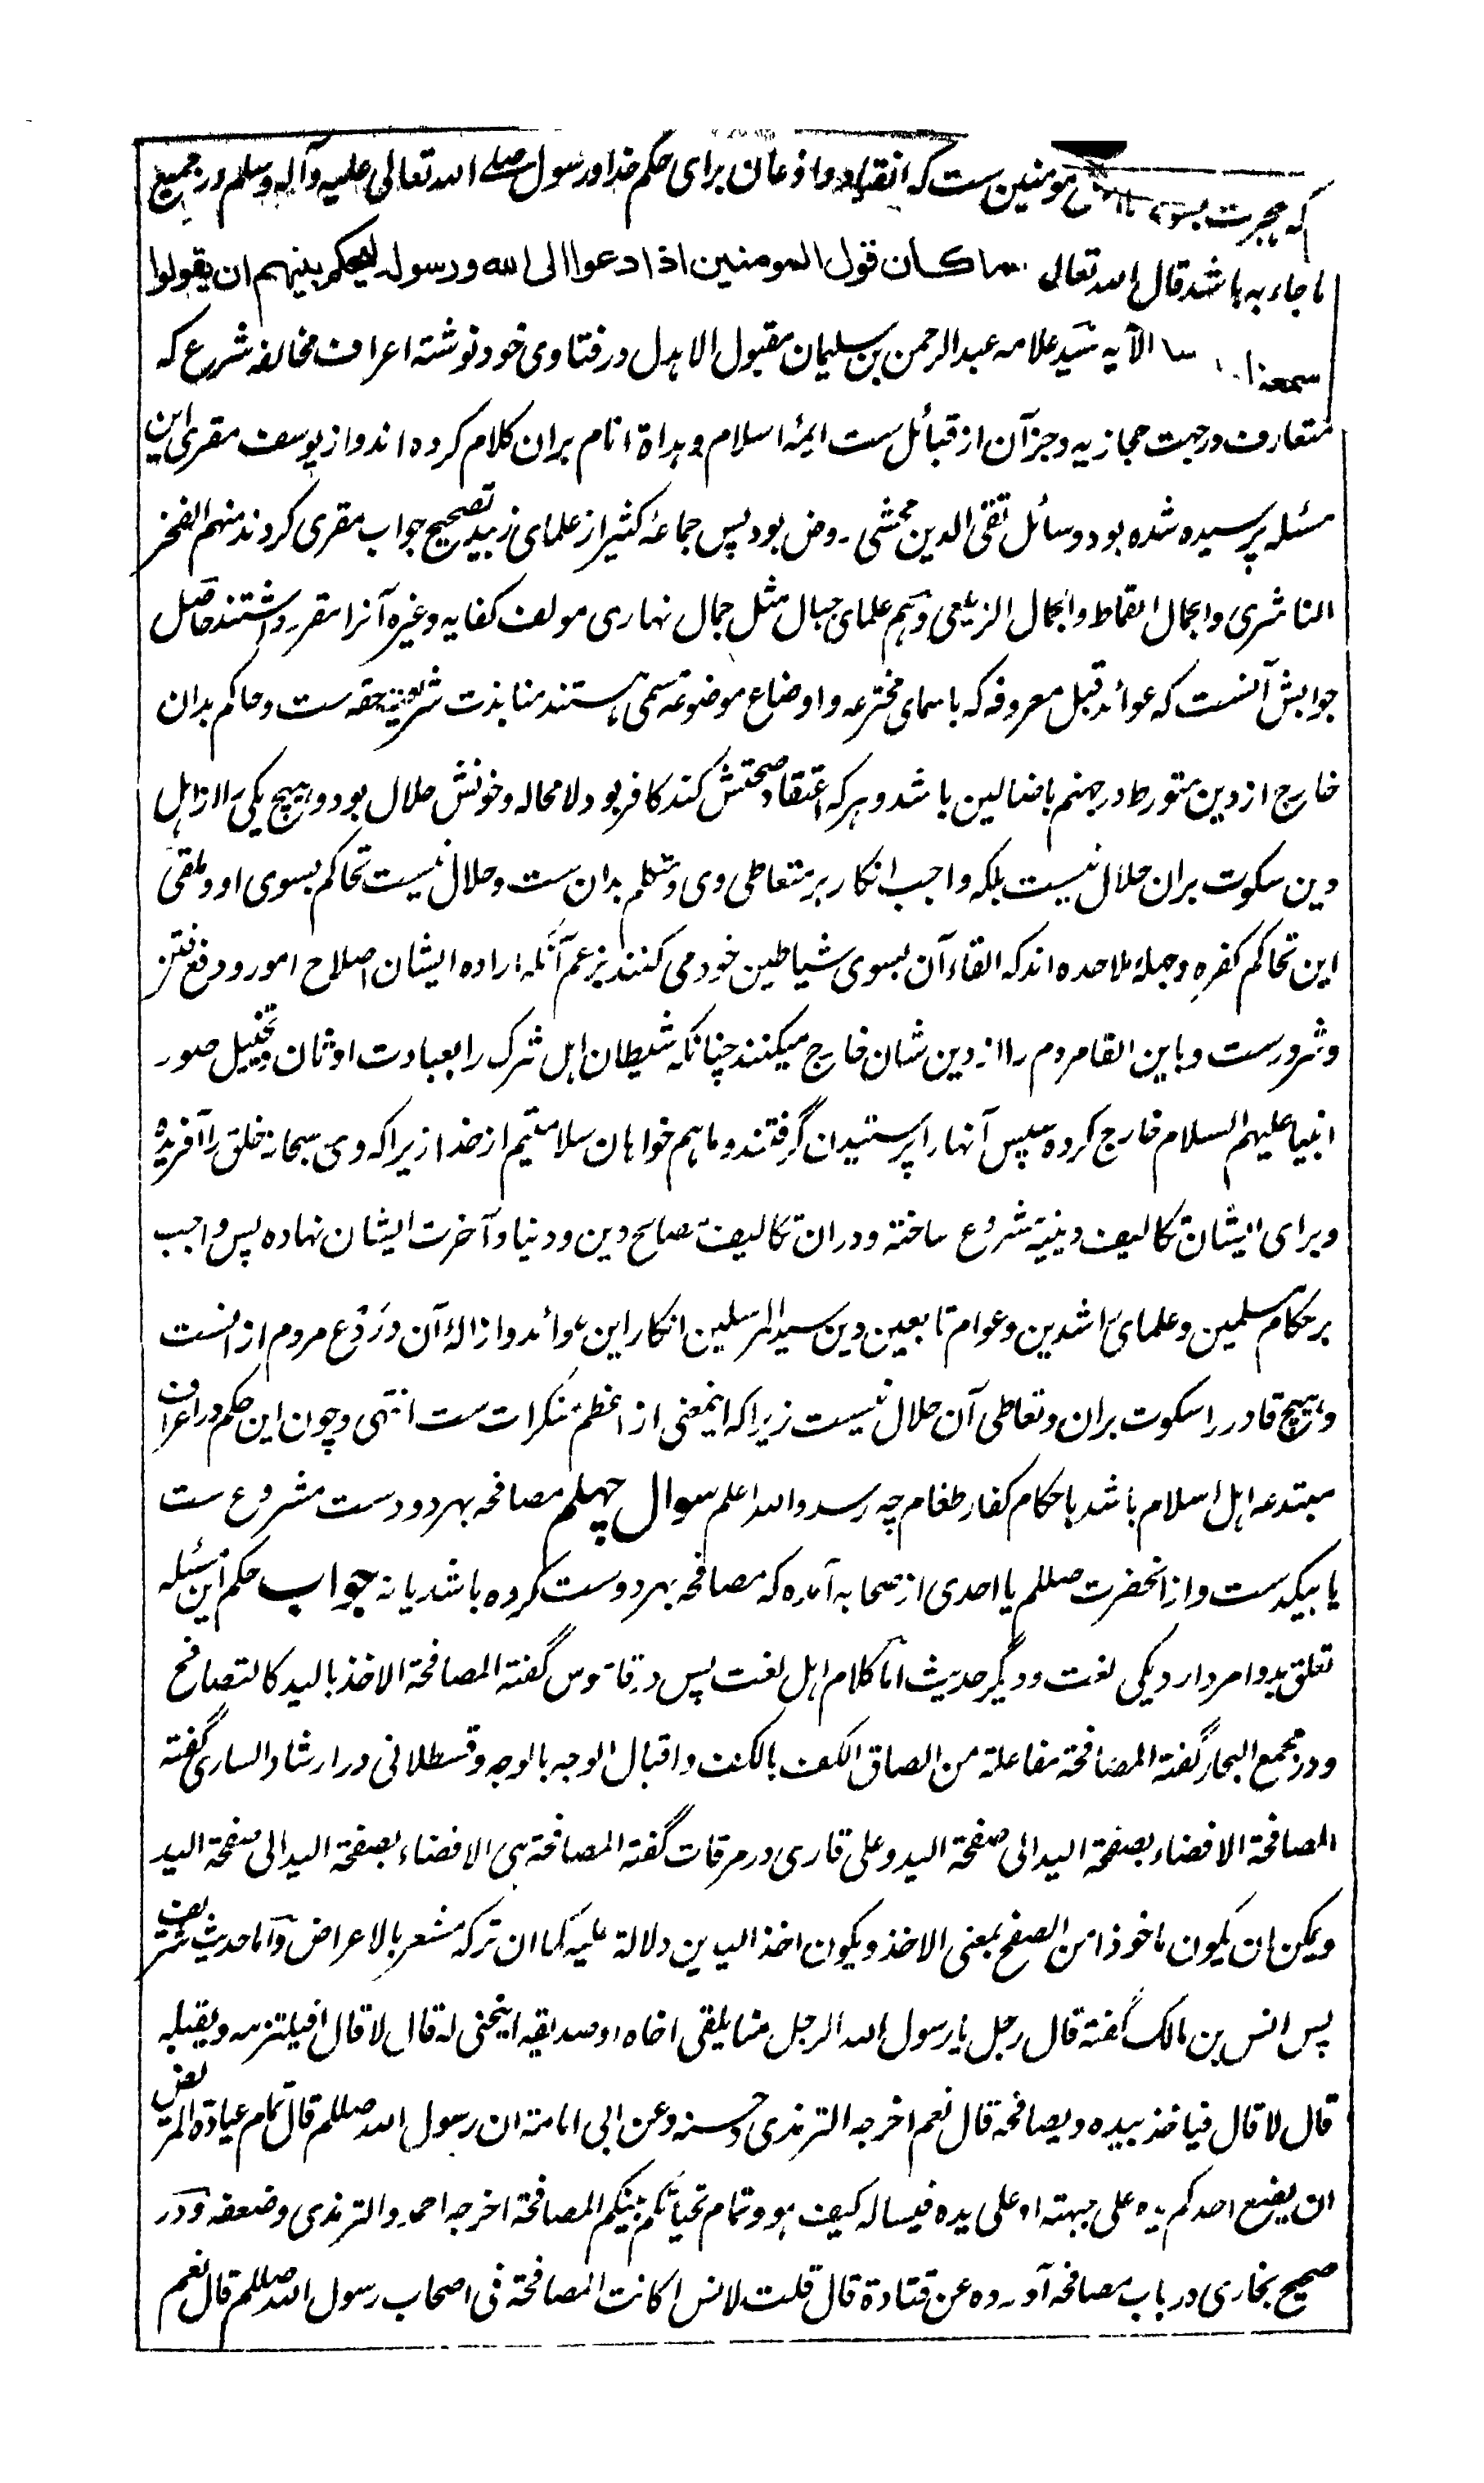 که هجرت بسوی مؤمنین ست که انقیاد و اذعان برای حکم خدا و رسول صلے الله تعالی علیه وآله وسلم در جمیع
ما جاء به باشد قال الله تعالی ما کان قول المومنین اذا دعوا الی الله ورسوله لیحکم بینهم ان یقولوا
سمعنا الآیه سید علامه عبدالرحمن بن سلیمان مقبول الاهدل در فتاوی خود نوشته اعراف مخالفه شرع که
متعارف در جهت حجازیه وجز آن از قبائل ست ایمۀ اسلام وهداة انام بران کلام کرده اند واز یوسف مقری این
مسئله پرسیده شده بود وسائل تقی الدین محشی روض بود پس جماعۀ کثیر از علمای زبید تصحیح جواب مقری کردند منهم الفخر
الناشری والجمال القماط والجمال الزیلعی وهم علمای جبال مثل جمال نهاری مولف کفایه وغیره آنرا مقرر داشتند حاصل
جوابش آنست که عوائد قبل معروفه که باسمای مخترعه و اوضاع موضوعه مسمی هستند منابذت شریعت حقه ست وحاکم بدان
خارج از دین متورط در جهنم باضالین باشد و هر که اعتقاد صحتش کند کافر بود لامحاله و خونش حلال بود و هیچ یکی را از اهل
دین سکوت بران حلال نیست بلکه واجب انکار بر متعاطی وی و متکلم بدان ست و حلال نیست تحاکم بسوی او و ملقی
این تحاکم کفره وجملۀ ملاحده اند که القاء آن بسوی شیاطین خود می کنند بزعم آنکه اراده ایشان اصلاح امور ودفع فتن
وشرورست و باین القا مردم را از دین شان خارج میکنند چنانکه شیطان اهل شرک را بعبادت اوثان وتخییل صور
انبیا علیهم السلام خارج کرده سپس آنها را پرستیدن گرفتند وما هم خواهان سلامتیم از خدا زیرا که وی سبحانه خلق را آفریده
وبرای ایشان تکالیف دینیه مشروع ساخته و دران تکالیف مصالح دین و دنیا و آخرت ایشان نهاده پس واجب
بر حکام مسلمین وعلمای راشدین وعوام تابعین دین سید المرسلین انکار این عوائد و ازالۀ آن وردع مردم از انست
و هیچ قادر را سکوت بران وتعاطی آن حلال نیست زیرا که اینمعنی از اعظم منکرات ست انتهی وچون این حکم در اعراف
مبتدعه اهل اسلام باشد باحکام کفار طغام چه رسد والله اعلم سوال چهلم مصافحه بهر دو دست مشروع ست
یا بیکدست و از آنحضرت صللم یا احدی از صحابه آمده که مصافحه بهر دو دست کرده باشد یا نه جواب حکم این مسئله
تعلق بدو امر دارد یکی لغت و دیگر حدیث اما کلام اهل لغت پس در قاموس گفته المصافحة الاخذ بالید کالتصافح
ودر مجمع البحار گفته المصافحة مفاعلة من الصاق الکف بالکف واقبال الوجه بالوجه وقسطلانی در ارشاد الساری گفته
المصافحة الافضاء بصفحة الید الی صفحة الید وعلی قاری در مرقات گفته المصافحة هی الافضاء بصفحة الید الی صفحة الید
ویمکن ان یکون ماخوذا من الصفح بمعنی الاخذ ویکون اخذ الیدین دلالة علیه کما ان ترکه مشعر بالاعراض واما حدیث شریف
پس انس بن مالک گفته قال رجل یا رسول الله الرجل منا یلقی اخاه او صدیقه اینحنی له قال لا قال افیلتزمه ویقبله
قال لا قال فیاخذ بیده ویصافحه قال نعم اخرجه الترمذی وحسنه وعن ابی امامة ان رسول الله صللم قال تمام عیادة المریض
ان یضع احدکم یده علی جبهته او علی یده فیساله کیف هو وتمام تحیاتکم بینکم المصافحة اخرجه احمد والترمذی وضعفه ودر
صحیح بخاری در باب مصافحه آورده عن قتادة قال قلت لانس ا کانت المصافحة فی اصحاب رسول الله صللم قال نعم